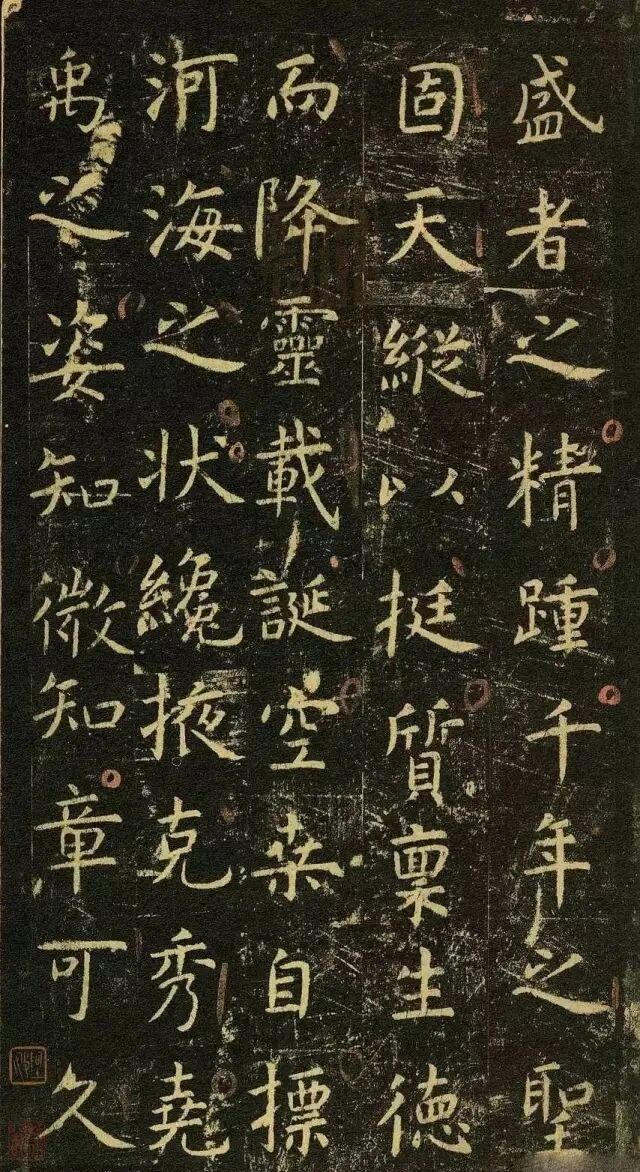 盛者之精踵千年之聖
固天縱以挺質禀生德
而降靈載誕空桒自標
河海之狀纔掖克秀堯
禹之姿知微知章可久